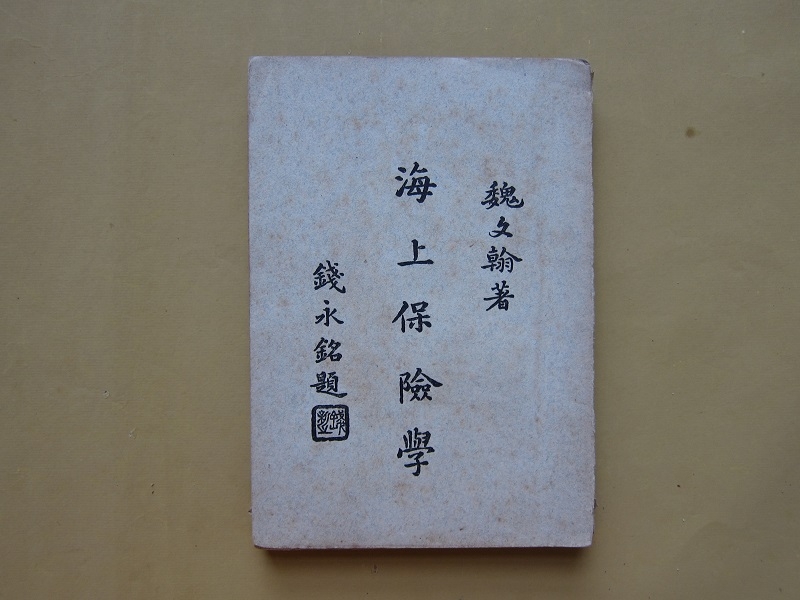 魏文翰著
海上保險學
錢永銘題